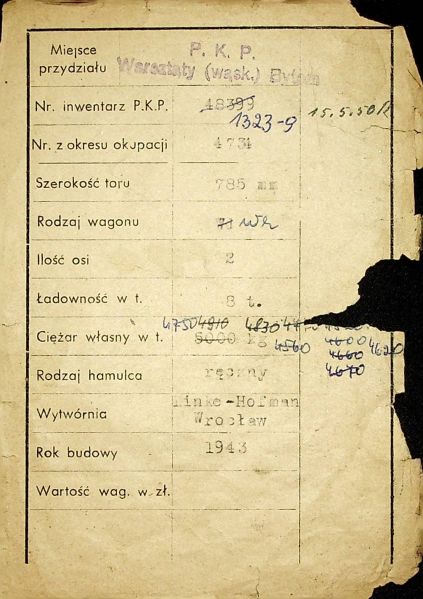 Miejsce przydziału P. K. P.
Warsztaty (wąsk.) Bytom
Nr. inwentarz P.K.P. 48399 15.5.50
1323-9
Nr. z okresu okupacji 4731
Szerokość toru 785 mm
Rodzaj wagonu Wk
Ilość osi 2
Ładowność w t. 8 t.
4750 4910 4830
Ciężar własny w t. 5000 kg 4560 4600 4620
4660
4670
Rodzaj hamulca ręczny
Wytwórnia Linke-Hofman
Wrocław
Rok budowy 1943
Wartość wag. w zł.